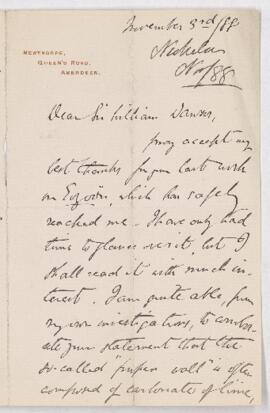 November 3rd/88
NEWTHORPE,
QUEEN'S ROAD,
ABERDEEN.
Nicholson
Nov/88
Dear Sir William Dawson,
pray accept my
best thanks for your last work
on Eozoön, which has safely
reached me. I have only had
time to glance over it, but I
shall read it with much in-
terest. I am quite able, from
my own investigations, to corrobor-
ate your statement that the
so-called "proper wall" is often
composed of carbonate of lime,